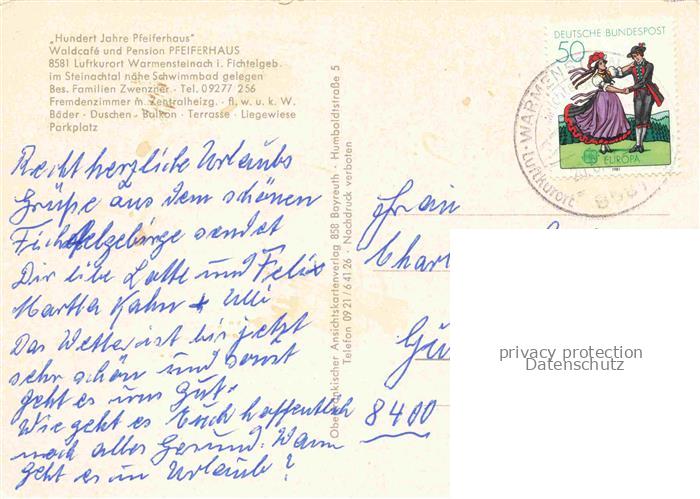 „Hundert Jahre Pfeiferhaus"
Waldcafé und Pension PFEIFERHAUS
8581 Luftkurort Warmensteinach i. Fichtelgeb.
im Steinachtal nahe Schwimmbad gelegen
Bes. Familien Zwenzner · Tel. 09277 256
Fremdenzimmer m. Zentralheizg. · fl. w. u. k. W.
Bäder · Duschen · Balkon · Terrasse · Liegewiese
Parkplatz
Recht herzliche Urlaubs
Grüße aus dem schönen
Fichtelgebirge sendet
Dir libe Lotte und Felix
Martha Kahn + Uli
Das Wetter ist bis jetzt
sehr schön und sonst
geht es uns gut.
Wie geht es Euch hoffentlich
noch alles Gesund. Wann
geht es in Urlaub?
Oberfränkischer Ansichtskartenverlag 858 Bayreuth · Humboldtstraße 5
Telefon 09 21 / 6 41 26 · Nachdruck verboten
DEUTSCHE BUNDESPOST
50
EUROPA
1981
Luftkurort
8581
Frau
8400
privacy protection
Datenschutz